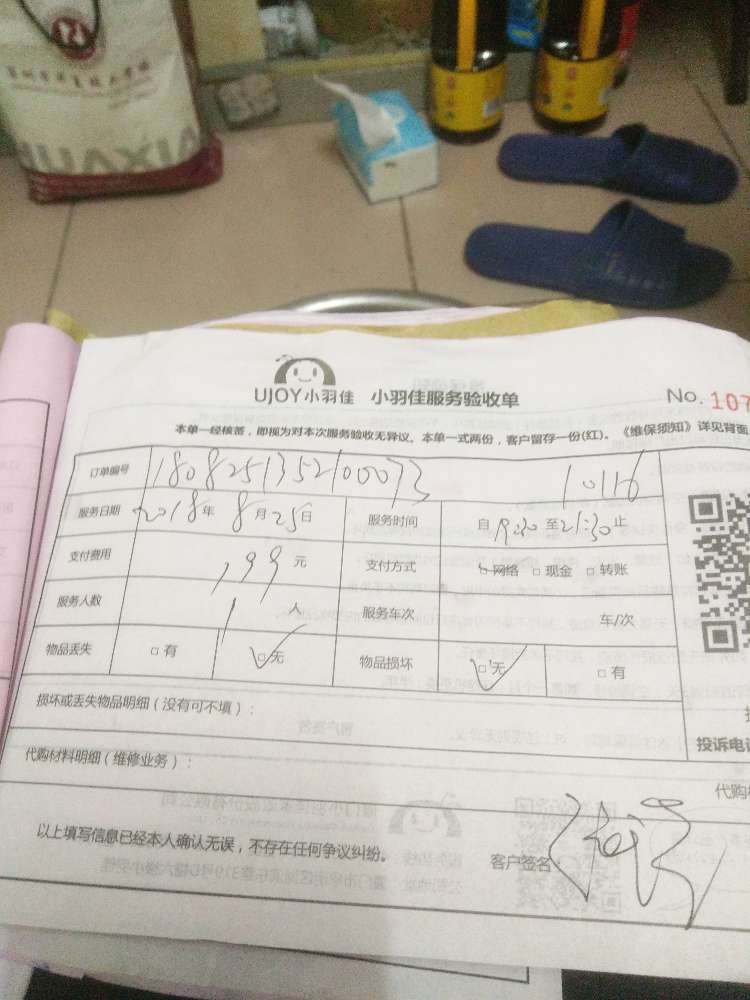 HUAXIA
UJOY小羽佳 小羽佳服务验收单 No. 107
本单一经核签，即视为对本次服务验收无异议。本单一式两份，客户留存一份(红)。《维保须知》详见背面
订单编号 1808251352100073 10116
服务日期 2018年 8月25日 服务时间 自19:30至21:30止
支付费用 199元 支付方式 □网络 □现金 □转账
服务人数 1人 服务车次 车/次
物品丢失 □有 □无 物品损坏 □无 □有
损坏或丢失物品明细（没有可不填）：
投诉电话
代购材料明细（维修业务）： 代购
以上填写信息已经本人确认无误，不存在任何争议纠纷。 客户签名